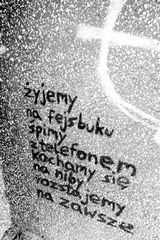 żyjemy
na fejsbuku
śpimy
z telefonem
kochamy się
na niby
rozstajemy
na zawsze